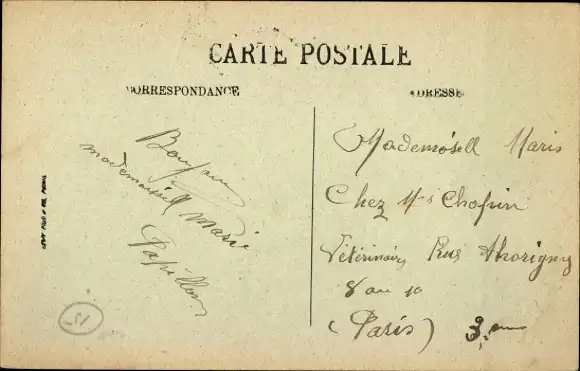 CARTE POSTALE
CORRESPONDANCE
ADRESSE
Bonjour
mademoisell Marie
Papillon
Mademoisell Maris
Chez Mrs Chopin
Vétérinair Rue Thorigny
8 au 10
(Paris) 3eme
15